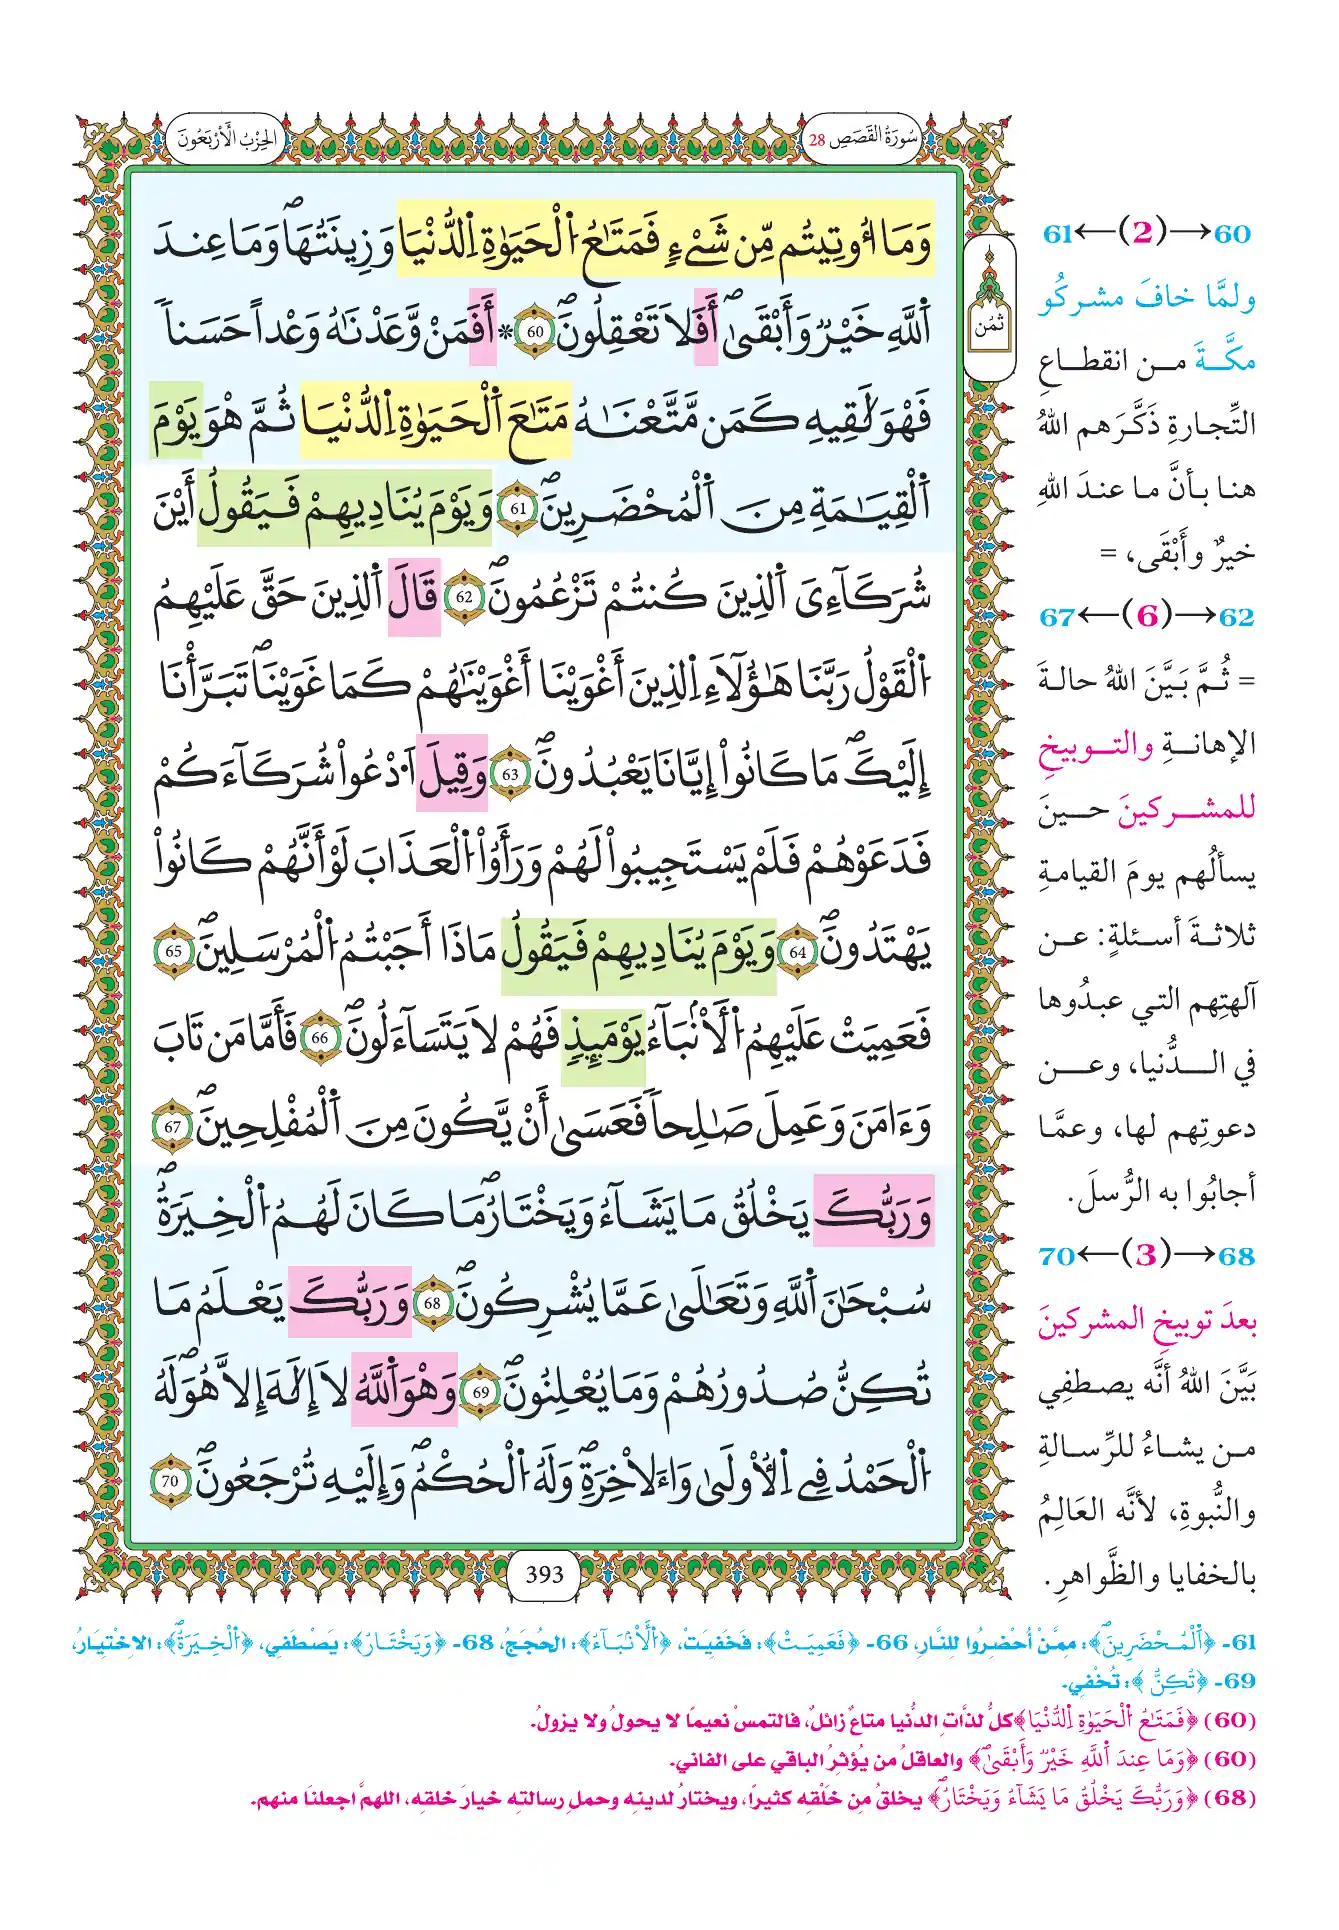 سُورَةُ القَصَصِ 28
الحِزْبُ الأَرْبَعُونَ
وَمَا أُوتِيتُم مِّن شَےْءٍ فَمَتَٰعُ اُ۬لْحَيَوٰةِ اِ۬لدُّنْيَا وَزِينَتُهَاۖ وَمَا عِندَ
اَ۬للَّهِ خَيْرٞ وَأَبْقَىٰٓۖ أَفَلَا تَعْقِلُونَۖ 60 * أَفَمَنْ وَّعَدْنَٰهُ وَعْداً حَسَناٗ
فَهْوَ لَٰقِيهِ كَمَن مَّتَّعْنَٰهُ مَتَٰعَ اَ۬لْحَيَوٰةِ اِ۬لدُّنْيَا ثُمَّ هْوَ يَوْمَ
اَ۬لْقِيَٰمَةِ مِنَ اَ۬لْمُحْضَرِينَۖ 61 وَيَوْمَ يُنَادِيهِمْ فَيَقُولُ أَيْنَ
شُرَكَآءِىَ اَ۬لذِينَ كُنتُمْ تَزْعُمُونَۖ 62 قَالَ اَ۬لذِينَ حَقَّ عَلَيْهِمُ
اُ۬لْقَوْلُ رَبَّنَا هَٰٓؤُلَآءِ اِ۬لذِينَ أَغْوَيْنَا أَغْوَيْنَٰهُمْ كَمَا غَوَيْنَاۖ تَبَرَّأْنَا
إِلَيْكَۖ مَا كَانُواْ إِيَّانَا يَعْبُدُونَۖ 63 وَقِيلَ اَ۟دْعُواْ شُرَكَآءَكُمْ
فَدَعَوْهُمْ فَلَمْ يَسْتَجِيبُواْ لَهُمْ وَرَأَوُاْ اُ۬لْعَذَابَ لَوْ أَنَّهُمْ كَانُواْ
يَهْتَدُونَۖ 64 وَيَوْمَ يُنَادِيهِمْ فَيَقُولُ مَاذَا أَجَبْتُمُ اُ۬لْمُرْسَلِينَۖ 65
فَعَمِيَتْ عَلَيْهِمُ اُ۬لْأَنۢبَآءُ يَوْمَئِذٖ فَهُمْ لَا يَتَسَآءَلُونَۖ 66 فَأَمَّا مَن تَابَ
وَءَامَنَ وَعَمِلَ صَٰلِحاٗ فَعَسَىٰٓ أَنْ يَّكُونَ مِنَ اَ۬لْمُفْلِحِينَۖ 67
وَرَبُّكَ يَخْلُقُ مَا يَشَآءُ وَيَخْتَارُۖ مَا كَانَ لَهُمُ اُ۬لْخِيَرَةُۖ
سُبْحَٰنَ اَ۬للَّهِ وَتَعَٰلَىٰ عَمَّا يُشْرِكُونَۖ 68 وَرَبُّكَ يَعْلَمُ مَا
تُكِنُّ صُدُورُهُمْ وَمَا يُعْلِنُونَۖ 69 وَهْوَ اَ۬للَّهُ لَا إِلَٰهَ إِلَّا هُوَۖ لَهُ
اُ۬لْحَمْدُ فِے اِ۬لْأُولَىٰ وَاَلْأٓخِرَةِۖ وَلَهُ اُ۬لْحُكْمُۖ وَإِلَيْهِ تُرْجَعُونَۖ 70
393
ثُمُن
60→(2)←61
ولمَّا خافَ مشركُو
مكَّةَ من انقطاعِ
التِّجارةِ ذَكَّرَهم اللهُ
هنا بأنَّ ما عندَ اللهِ
خيرٌ وأَبْقَى، =
62→(6)←67
= ثُمَّ بَيَّنَ اللهُ حالةَ
الإهانةِ والتوبيخِ
للمشركينَ حينَ
يسألُهم يومَ القيامةِ
ثلاثةَ أسئلةٍ: عن
آلهتِهم التي عبدُوها
في الدُّنيا، وعن
دعوتِهم لها، وعمَّا
أجابُوا به الرُّسلَ.
68→(3)←70
بعدَ توبيخِ المشركينَ
بَيَّنَ اللهُ أنَّه يصطفِي
من يشاءُ للرِّسالةِ
والنُّبوةِ، لأنَّه العَالِمُ
بالخفايا والظَّواهرِ.
61- ﴿اَ۬لْمُحْضَرِينَۖ﴾: ممَّنْ أُحْضِرُوا للنَّارِ، 66- ﴿فَعَمِيَتْ﴾: فَخَفِيَتْ، ﴿اُ۬لْأَنۢبَآءُ﴾: الحُجَجُ، 68- ﴿وَيَخْتَارُ﴾: يَصْطَفِي، ﴿اُ۬لْخِيَرَةُۖ﴾: الاخْتِيَارُ،
69- ﴿تُكِنُّ﴾: تُخْفِي.
(60) ﴿فَمَتَٰعُ اُ۬لْحَيَوٰةِ اِ۬لدُّنْيَا﴾ كلُّ لذَّاتِ الدُّنيا متاعٌ زائلٌ، فالتمسْ نعيمًا لا يحولُ ولا يزولُ.
(60) ﴿وَمَا عِندَ اَ۬للَّهِ خَيْرٞ وَأَبْقَىٰٓۖ﴾ والعاقلُ من يُؤثرُ الباقي على الفاني.
(68) ﴿وَرَبُّكَ يَخْلُقُ مَا يَشَآءُ وَيَخْتَارُۖ﴾ يخلقُ مِن خَلْقِه كثيرًا، ويختارُ لدينِه وحملِ رسالتِه خيارَ خلقِه، اللهمَّ اجعلنَا منهم.